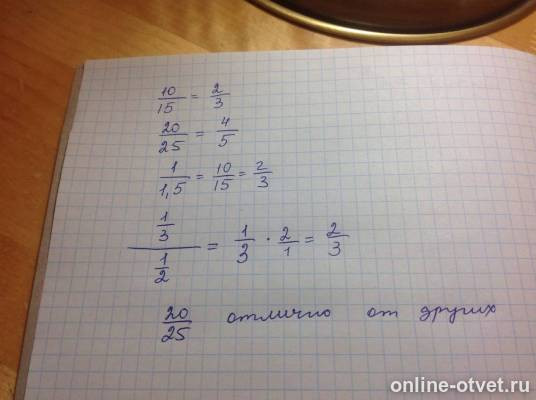 10/15 = 2/3
20/25 = 4/5
1/1,5 = 10/15 = 2/3
1/3 / 1/2 = 1/3 · 2/1 = 2/3
20/25 отлично от других
online-otvet.ru